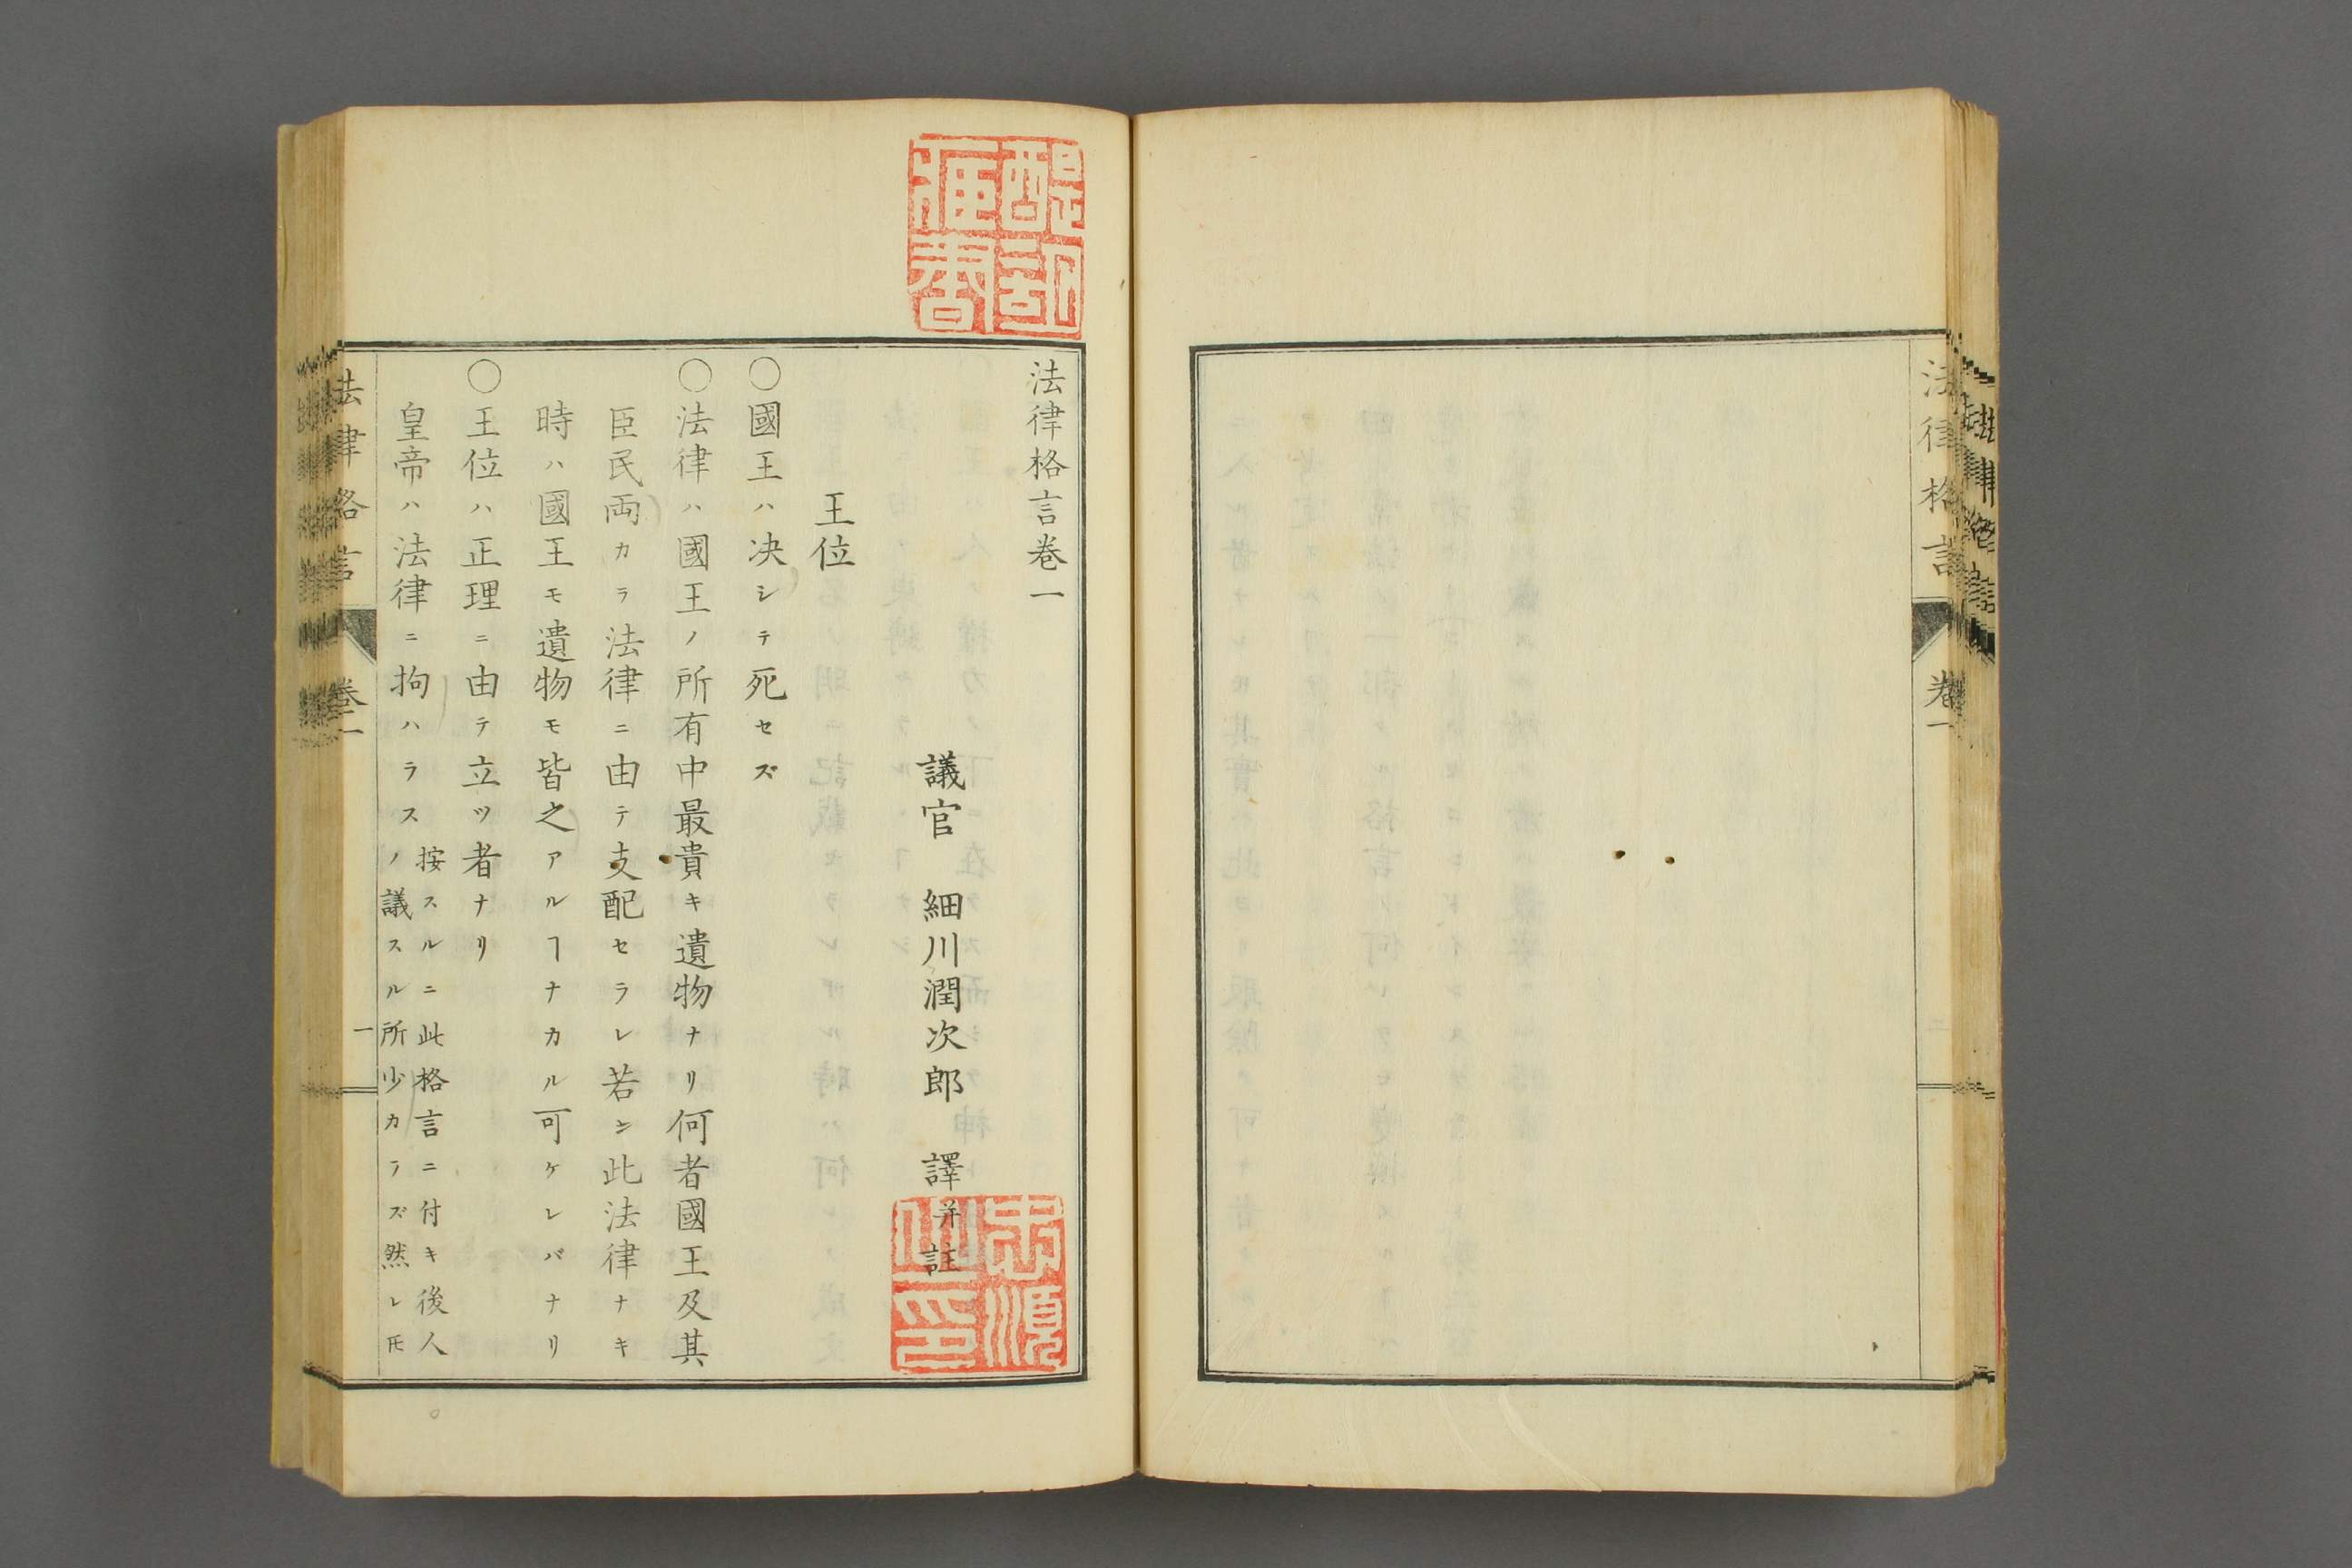 法律格言
卷一
法律格言卷一
議官　細川潤次郎　譯并註
王位
〇國王ハ決シテ死セズ
〇法律ハ國王ノ所有中最貴キ遺物ナリ何者國王及其
臣民両カラ法律ニ由テ支配セラレ若シ此法律ナキ
時ハ國王モ遺物モ皆之アルヿナカル可ケレバナリ
〇王位ハ正理ニ由テ立ツ者ナリ
皇帝ハ法律ニ拘ハラス
按スルニ此格言ニ付キ後人
ノ議スル所少カラズ然レ𪜈
法律格言
卷一
一